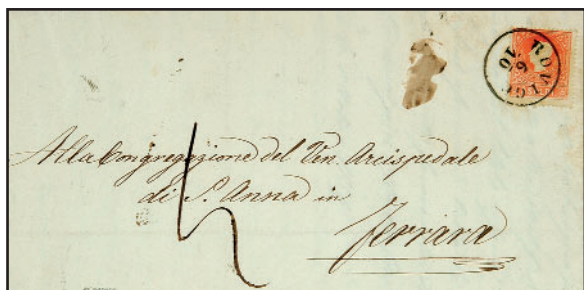 ROVIGO
10
6
Alla Congregazione del Ven. Arcispedale
di S. Anna in
Ferrara